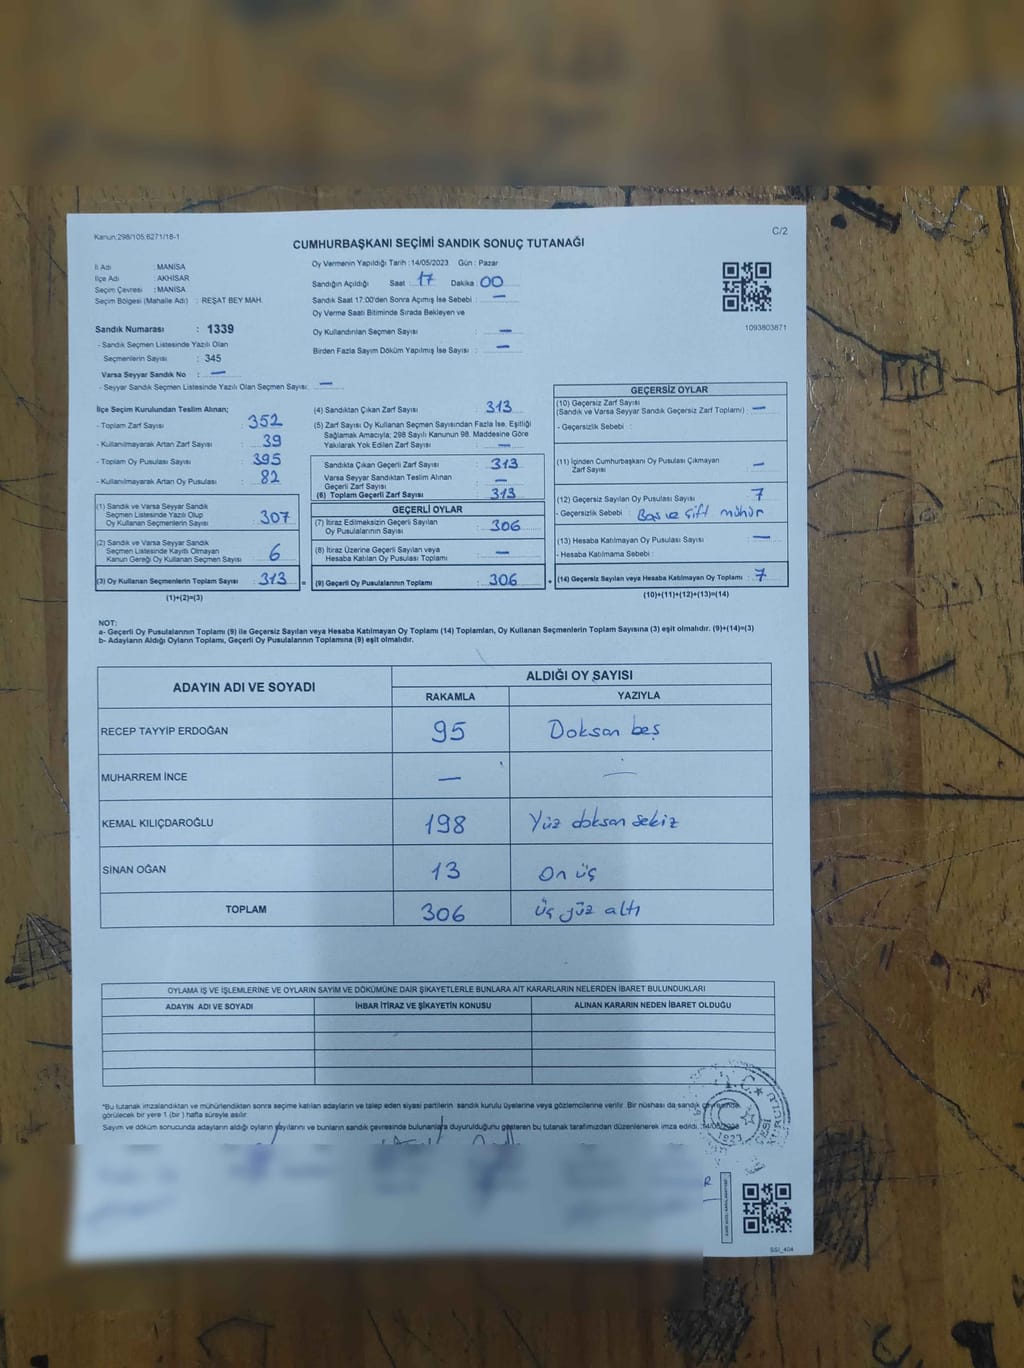 Kanun:298/105;6271/18-1
C/2
CUMHURBAŞKANI SEÇİMİ SANDIK SONUÇ TUTANAĞI
İl Adı : MANİSA
İlçe Adı : AKHİSAR
Seçim Çevresi : MANİSA
Seçim Bölgesi (Mahalle Adı) : REŞAT BEY MAH.
Sandık Numarası : 1339
- Sandık Seçmen Listesinde Yazılı Olan
Seçmenlerin Sayısı : 345
Varsa Seyyar Sandık No : —
- Seyyar Sandık Seçmen Listesinde Yazılı Olan Seçmen Sayısı: —
Oy Vermenin Yapıldığı Tarih :14/05/2023 Gün : Pazar
Sandığın Açıldığı Saat : 17 Dakika : 00
Sandık Saat 17:00'den Sonra Açılmış İse Sebebi : —
Oy Verme Saati Bitiminde Sırada Bekleyen ve
Oy Kullandırılan Seçmen Sayısı : —
Birden Fazla Sayım Döküm Yapılmış İse Sayısı : —
1093803871
İlçe Seçim Kurulundan Teslim Alınan;
- Toplam Zarf Sayısı : 352
- Kullanılmayarak Artan Zarf Sayısı : 39
- Toplam Oy Pusulası Sayısı : 395
- Kullanılmayarak Artan Oy Pusulası : 82
(1) Sandık ve Varsa Seyyar Sandık
Seçmen Listesinde Yazılı Olup
Oy Kullanan Seçmenlerin Sayısı : 307
(2) Sandık ve Varsa Seyyar Sandık
Seçmen Listesinde Kayıtlı Olmayan
Kanun Gereği Oy Kullanan Seçmen Sayısı : 6
(3) Oy Kullanan Seçmenlerin Toplam Sayısı : 313 =
(1)+(2)=(3)
(4) Sandıktan Çıkan Zarf Sayısı : 313
(5) Zarf Sayısı Oy Kullanan Seçmen Sayısından Fazla İse, Eşitliği
Sağlamak Amacıyla; 298 Sayılı Kanunun 98. Maddesine Göre
Yakılarak Yok Edilen Zarf Sayısı : —
Sandıkta Çıkan Geçerli Zarf Sayısı : 313
Varsa Seyyar Sandıktan Teslim Alınan
Geçerli Zarf Sayısı : —
(6) Toplam Geçerli Zarf Sayısı : 313
GEÇERLİ OYLAR
(7) İtiraz Edilmeksizin Geçerli Sayılan
Oy Pusulalarının Sayısı : 306
(8) İtiraz Üzerine Geçerli Sayılan veya
Hesaba Katılan Oy Pusulası Toplamı : —
(9) Geçerli Oy Pusulalarının Toplamı : 306 +
GEÇERSİZ OYLAR
(10) Geçersiz Zarf Sayısı
(Sandık ve Varsa Seyyar Sandık Geçersiz Zarf Toplamı) : —
- Geçersizlik Sebebi :
(11) İçinden Cumhurbaşkanı Oy Pusulası Çıkmayan
Zarf Sayısı : —
(12) Geçersiz Sayılan Oy Pusulası Sayısı : 7
- Geçersizlik Sebebi : Boş ve çift mühür
(13) Hesaba Katılmayan Oy Pusulası Sayısı : —
- Hesaba Katılmama Sebebi :
(14) Geçersiz Sayılan veya Hesaba Katılmayan Oy Toplamı : 7
(10)+(11)+(12)+(13)=(14)
NOT:
a- Geçerli Oy Pusulalarının Toplamı (9) ile Geçersiz Sayılan veya Hesaba Katılmayan Oy Toplamı (14) Toplamları, Oy Kullanan Seçmenlerin Toplam Sayısına (3) eşit olmalıdır. (9)+(14)=(3)
b- Adayların Aldığı Oyların Toplamı, Geçerli Oy Pusulalarının Toplamına (9) eşit olmalıdır.
ADAYIN ADI VE SOYADI
ALDIĞI OY SAYISI
RAKAMLA YAZIYLA
RECEP TAYYİP ERDOĞAN 95 Doksan beş
MUHARREM İNCE — —
KEMAL KILIÇDAROĞLU 198 Yüz doksan sekiz
SİNAN OĞAN 13 On üç
TOPLAM 306 üç yüz altı
OYLAMA İŞ VE İŞLEMLERİNE VE OYLARIN SAYIM VE DÖKÜMÜNE DAİR ŞİKAYETLERLE BUNLARA AİT KARARLARIN NELERDEN İBARET BULUNDUKLARI
ADAYIN ADI VE SOYADI İHBAR İTİRAZ VE ŞİKAYETİN KONUSU ALINAN KARARIN NEDEN İBARET OLDUĞU
*Bu tutanak imzalandıktan ve mühürlendikten sonra seçime katılan adayların ve talep eden siyasi partilerin sandık kurulu üyelerine veya gözlemcilerine verilir. Bir nüshası da sandık
görülecek bir yere 1 (bir ) hafta süreyle asılır.
Sayım ve döküm sonucunda adayların aldığı oyların sayılarını ve bunların sandık çevresinde bulunanlara duyurulduğunu gösteren bu tutanak tarafımızdan düzenlenerek imza edildi.
1923
SSI_404